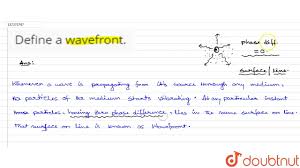 Define a wavefront.
phase diff.
= 0
surface / line
Ans:
Whenever a wave is propagating from its source through any medium,
the particles of the medium starts vibrating. At any particular instant
those particles, having zero phase difference, lies in the same surface or line.
That surface or line is known as Wavefront.
doubtnut